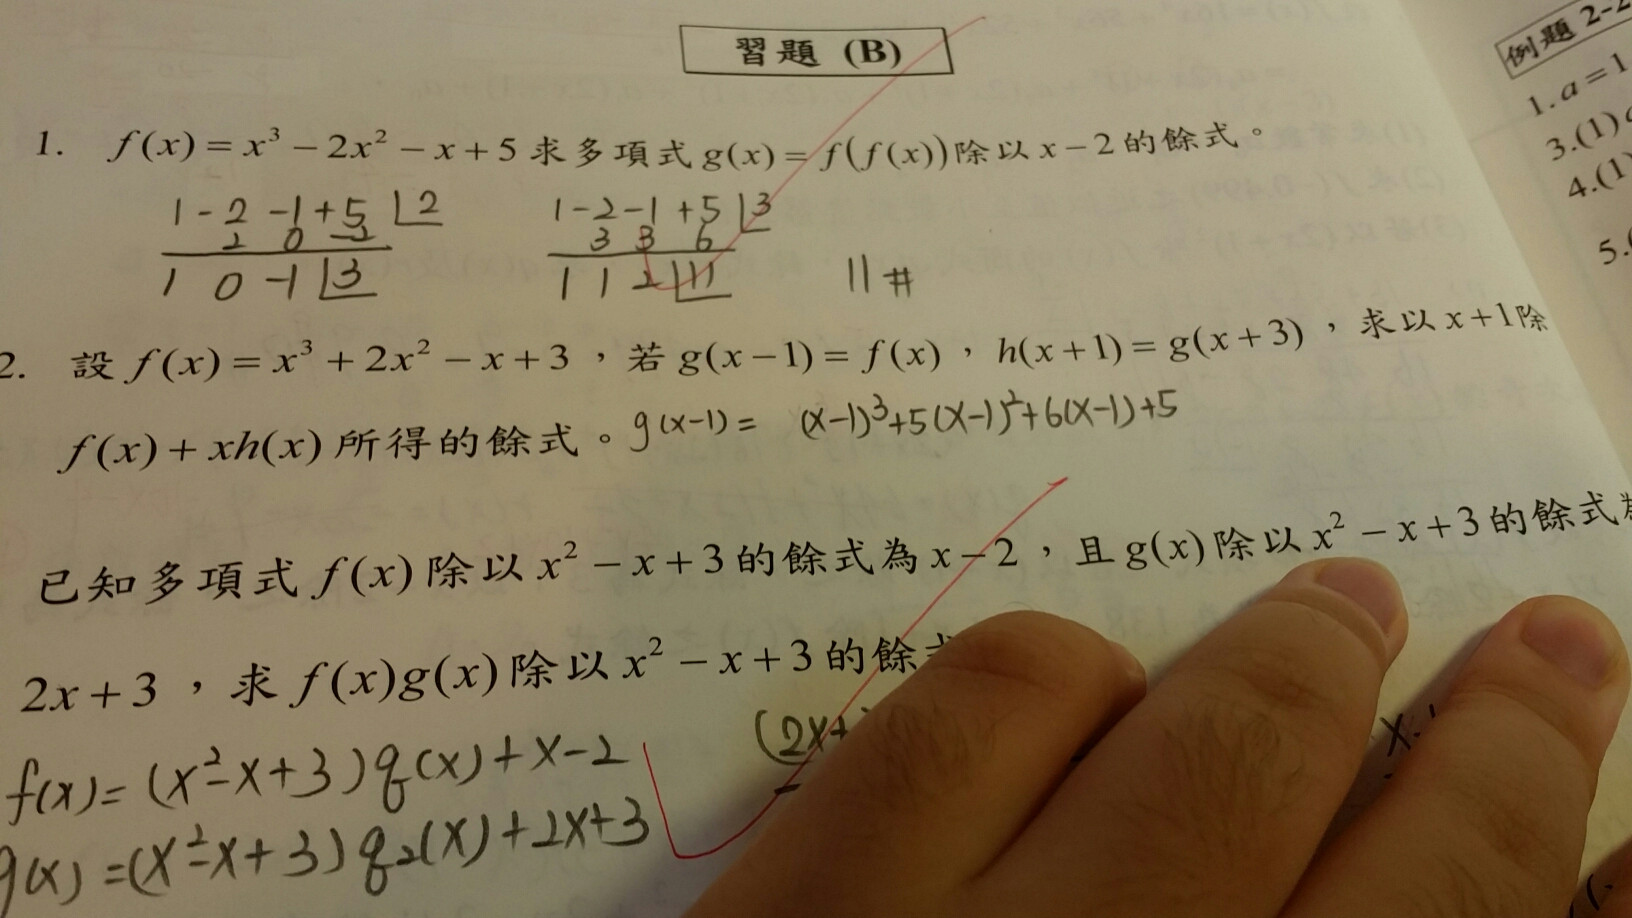 習題 (B)
1. f(x) = x³ − 2x² − x + 5 求多項式 g(x) = f(f(x)) 除以 x − 2 的餘式。
1 - 2 - 1 + 5 | 2
2 0 -2
1 0 -1 | 3
1 - 2 - 1 + 5 | 3
3 3 6
1 1 2 | 11
11 #
2. 設 f(x) = x³ + 2x² − x + 3，若 g(x − 1) = f(x)，h(x + 1) = g(x + 3)，求以 x + 1 除
f(x) + xh(x) 所得的餘式。
g(x-1) = (x-1)³+5(x-1)²+6(x-1)+5
已知多項式 f(x) 除以 x² − x + 3 的餘式為 x − 2，且 g(x) 除以 x² − x + 3 的餘式為
2x + 3，求 f(x)g(x) 除以 x² − x + 3 的餘式
f(x) = (x²-x+3) q(x) + x-2
(2x+
g(x) = (x²-x+3) q₂(x) + 2x+3
例題 2-2
1. a = 1
3.(1)
4.(1)
5.(